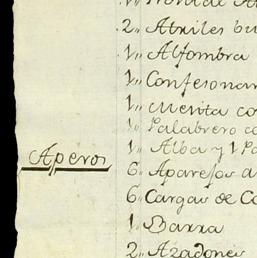 2,, Atriles
1,, Alfombra
1,, Confesonar
1,, cuenta co
1,, Palabrero co
1,, Alba y 1 Pa
Aperos
6,, Aparejos a
6,, Cargas de Co
1,, Barra
2,, Azadones